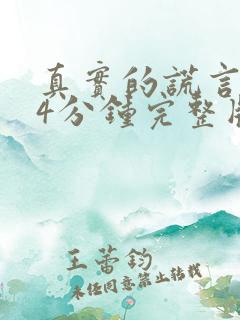 真實的謊言
4分鍾完整
王蕾鈞
未经同意禁止转载